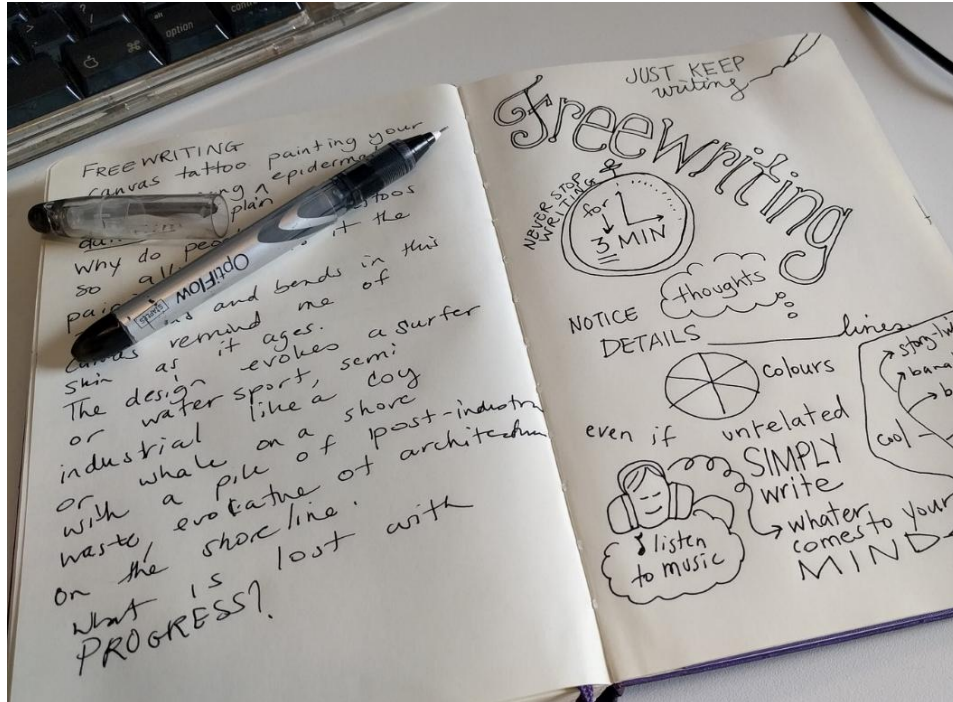 option
FREEWRITING
canvas tattoo painting your
plan
Why do
so
and bends in this
canvas remind me of
skin as it ages.
The design evokes a surfer
or water sport, semi
industrial like a coy
or whale on a shore
with a pile of post-industria
waste, evocative of architectu
on the shoreline.
What is lost with
PROGRESS?
OPTIFLOW
JUST KEEP
writing
Freewriting
NEVER STOP
WRITING
for
3 MIN
thoughts
NOTICE
DETAILS
lines
colours
even if untelated
SIMPLY
write
whater
comes to your
MIND
listen
to music
story-
bana
b
cool